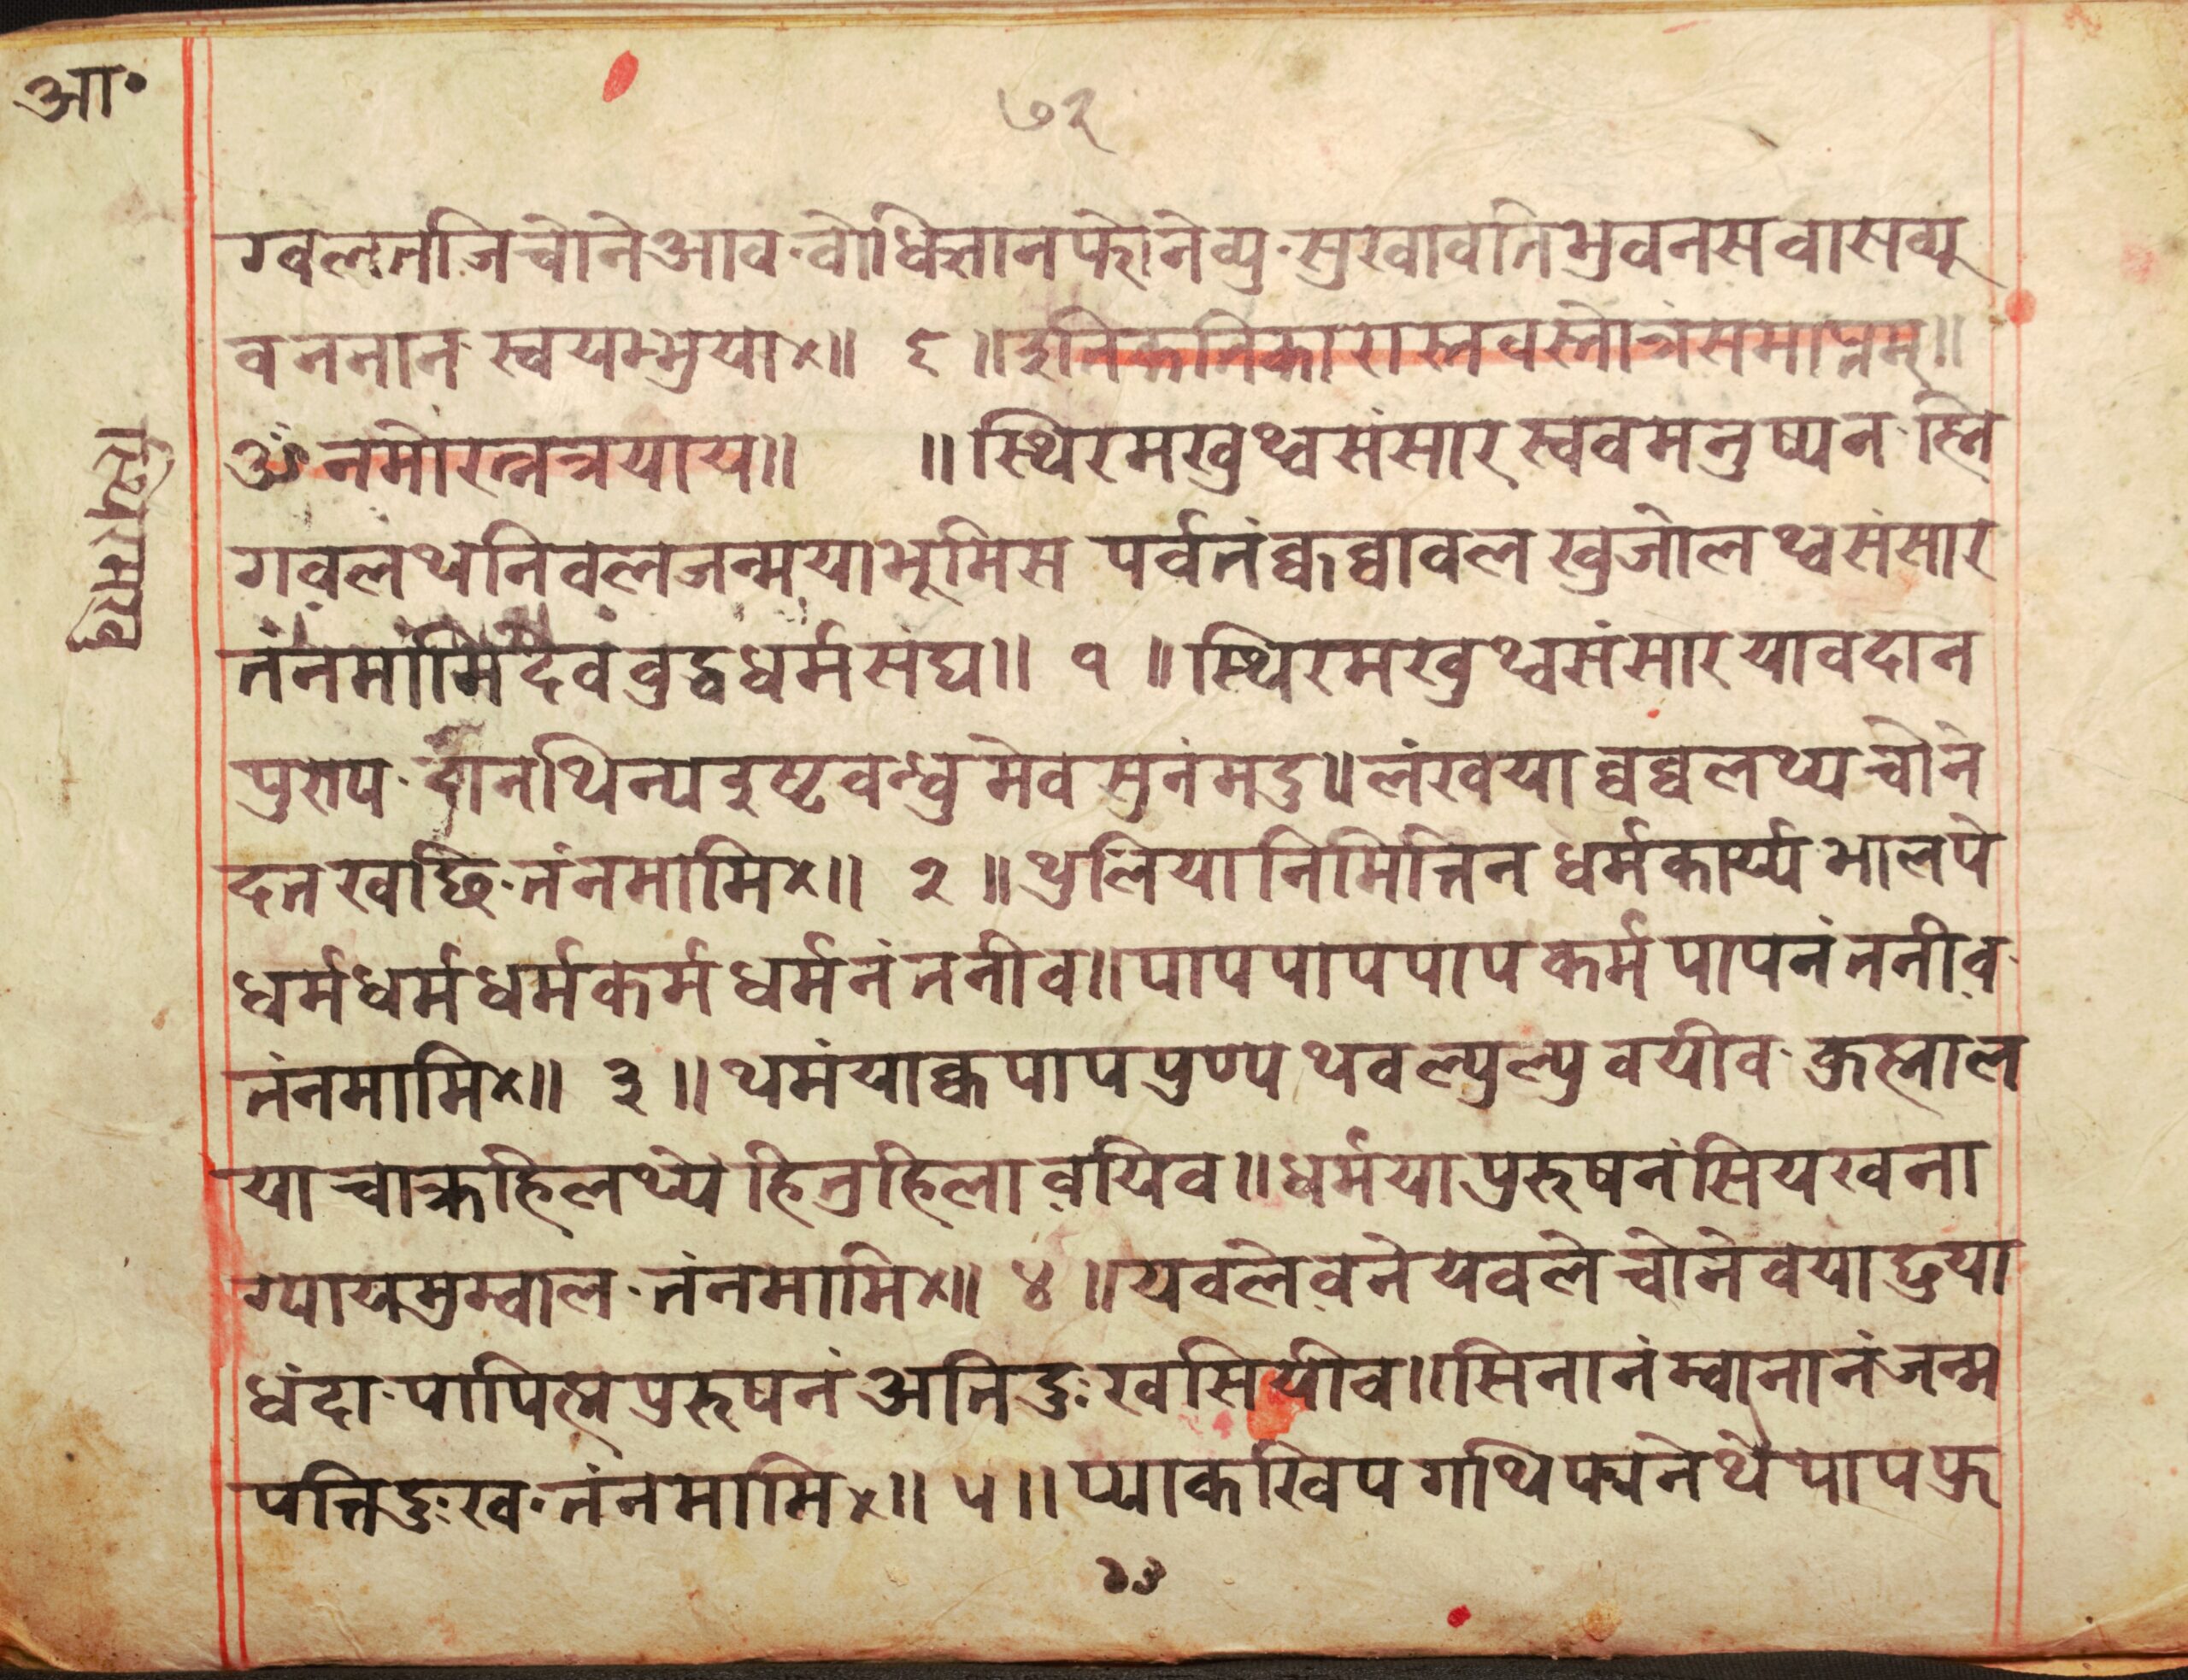 आ॰
७२
ग्वलतजिचोनेआव॰वोधिज्ञानफोनेव्यु॰सुखावतिभुवनसवासव्यू
वननान॰स्वयम्भुया×॥ ६ ॥इतिकनिकारास्तवस्तोत्रंसमाप्तम्॥
ॐनमोरत्नत्रयाय॥ ॥स्थिरमखुथ्वसंसारस्ववमनुष्यन॰ह्नि
गवलंथनिवलजन्मयाभूमिस पर्वतंक्वक्वावलखुजोलथ्वसंसार
तंनमामिदेवंवुद्धधर्मसंघ॥ १ ॥स्थिरमखुथ्वसंसारयावदान
पुरुष॰दानथिन्यइष्टवन्धुमेवसुनंमदु॥लंखयाक्वक्वलथ्यचोन
दतखछि॰तंनमामि×॥ २ ॥थुलियानिमित्तिनधर्मकार्य्यभालपे
धर्मधर्मधर्मकर्मधर्मनंतनीव॥पापपापपापकर्मपापनंतनीव॰
तंनमामि×॥ ३ ॥थमंयाक्वपापपुण्यथवल्युल्युवयीव॰कुह्माल
याचाक्रहिलथ्यंहितुहिलावयिव॥धर्मयापुरुषनंसियखना
ग्यायमुम्वाल॰तंनमामि×॥ ४ ॥यवलेवनेयवलेचोनेवयादुया
धंदा॰पापित्मपुरुषनंअतिदुःखसियीव॥सिनानंम्वानानंजन्म
पत्तिदुःख॰तंनमामि×॥ ५ ॥प्याकखिपगथिफ्यनेथेपापफु
७३
स्थिरमखु